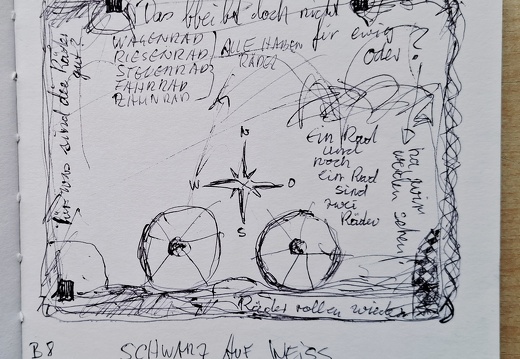 Das bleibt doch nicht
für ewig
oder ?
WAGENRAD
RIESENRAD
STEUERRAD
FAHRRAD
ZAHNRAD
ALLE HABEN
RÄDER
für was sind die Räder
gut?
N
W
O
S
Ein Rad
und
noch
ein Rad
sind
zwei
Räder
ha wir
werden sehen!
Räder rollen wieder
B8
SCHWARZ AUF WEISS